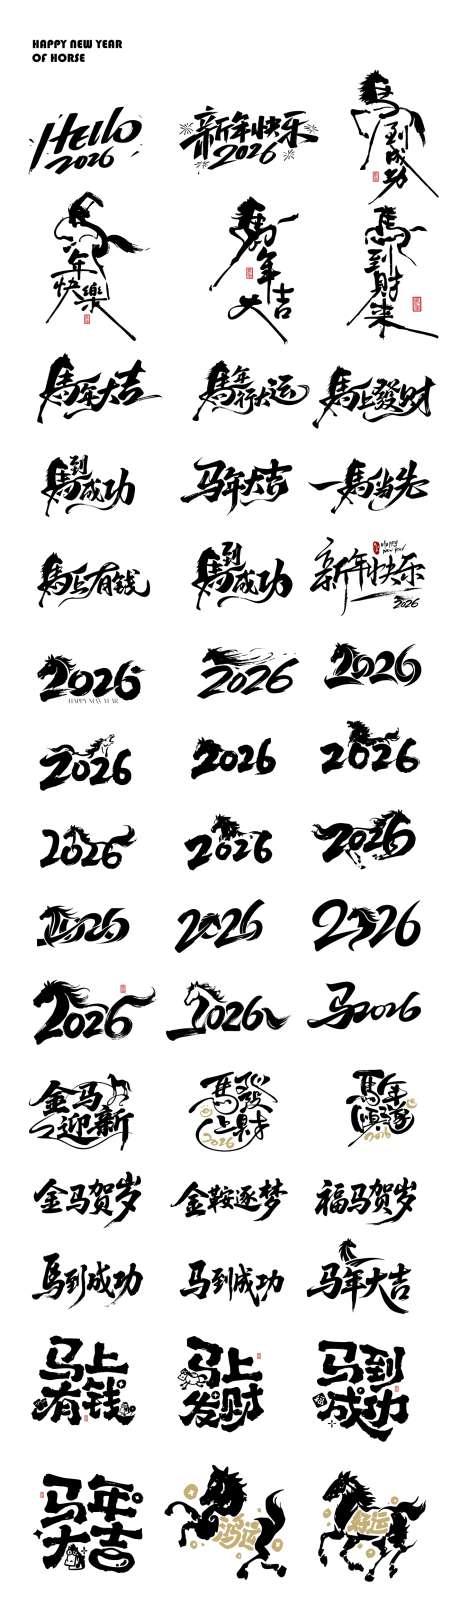 HAPPY NEW YEAR
OF HORSE
HELLO
2026
新年快乐
2026
馬到成功
馬年快樂
馬年大吉
馬到財来
馬年大吉
馬年行大运
馬上發财
馬到成功
马年大吉
一馬当先
馬上有钱
馬到成功
新年快乐
Happy
new year
2026
2026
HAPPY NEW YEAR
2026
2026
2026
2026
2026
2026
2026
2026
2026
2026
2026
2026
2026
马2026
金马
迎新
馬發
上財
2026
馬年
2026
金马贺岁
金鞍逐梦
福马贺岁
馬到成功
马到成功
马年大吉
马上
有钱
马上
发财
马到
成功
马年
大吉
鸿运
好运